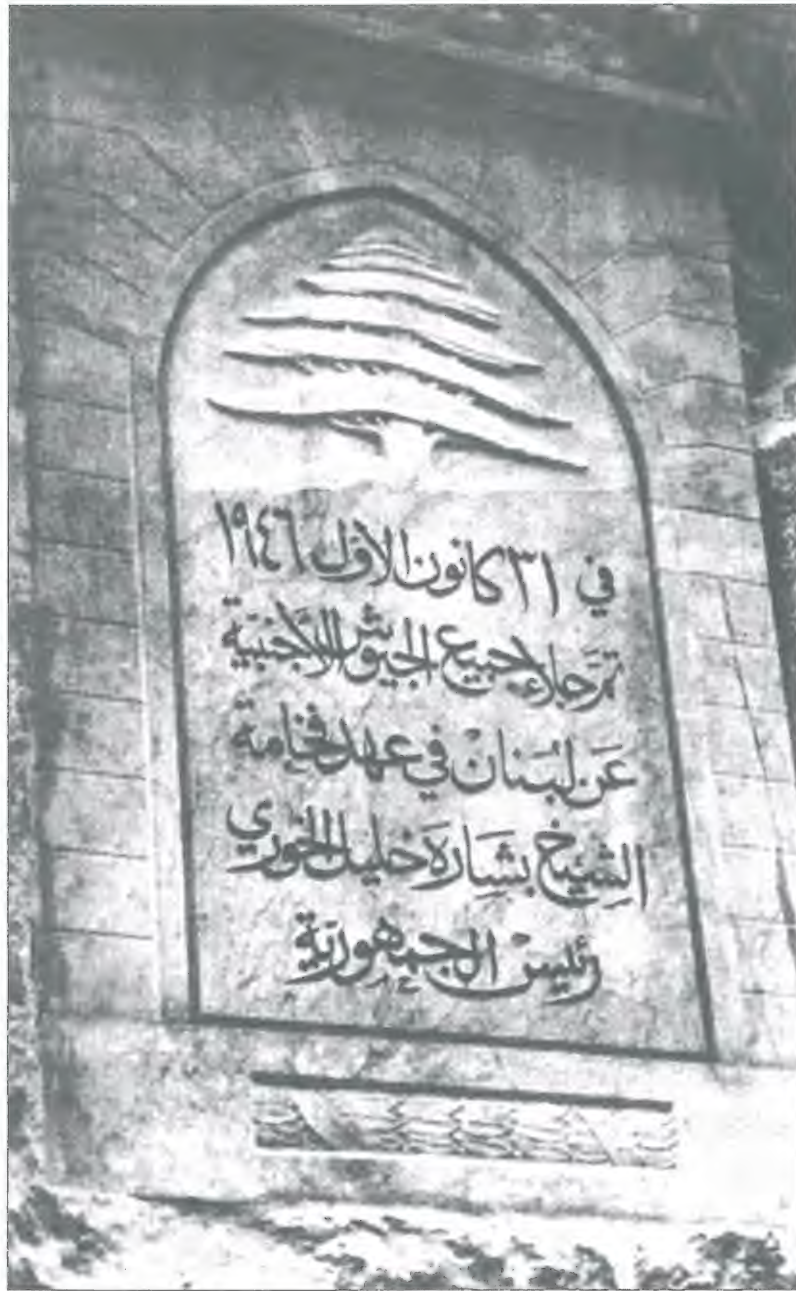 في ٣١ كانون الأوّل ١٩٤٦
تمّ جلاء جميع الجيوش الأجنبيّة
عَن لبُنَان في عهد فخامة
الشِيخ بشَارَة خليل الخوري
رئيسْ الجمهوريّة